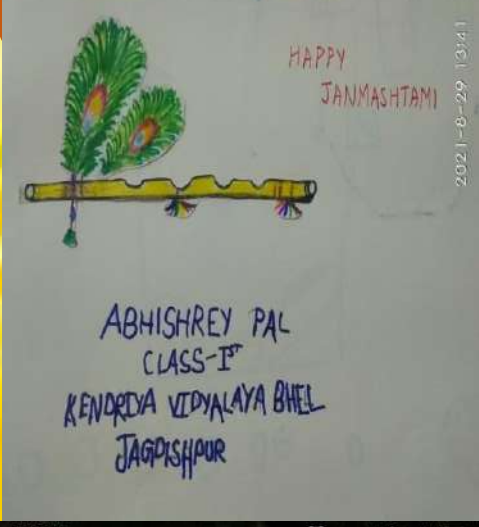 HAPPY
JANMASHTAMI
2021-8-29 13:41
ABHISHREY PAL
CLASS-IST
KENDRIYA VIDYALAYA BHEL
JAGDISHPUR